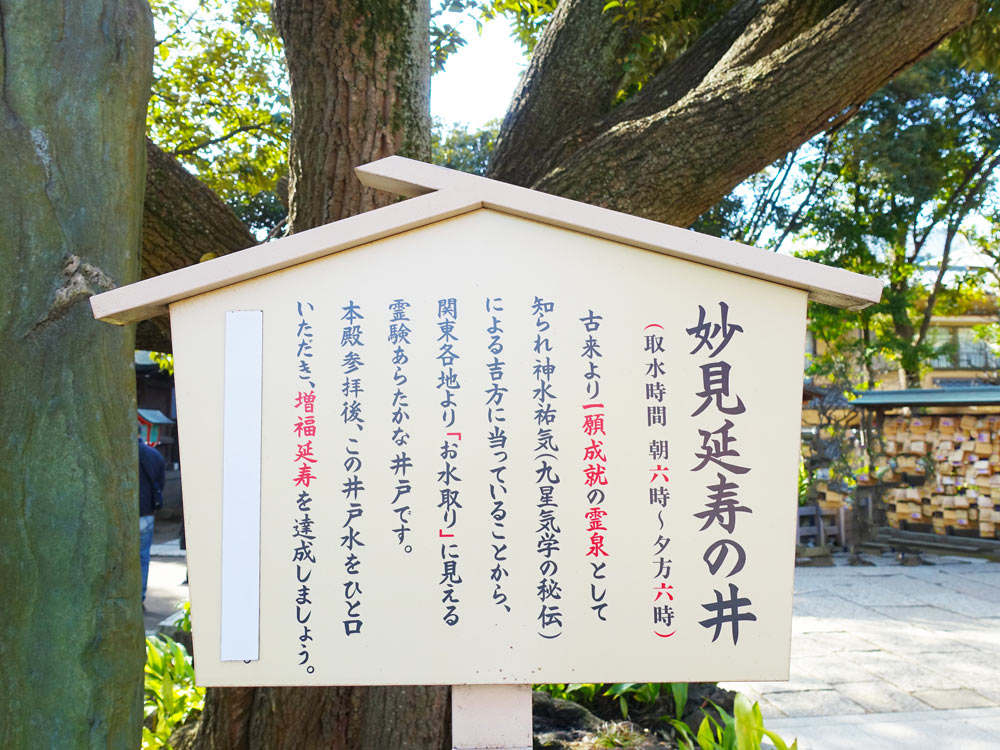 妙見延寿の井
(取水時間 朝六時～夕方六時)
古来より一願成就の霊泉として
知られ神水祐気(九星気学の秘伝)
による吉方に当っていることから、
関東各地より「お水取り」に見える
霊験あらたかな井戸です。
本殿参拝後、この井戸水をひと口
いただき、増福延寿を達成しましょう。